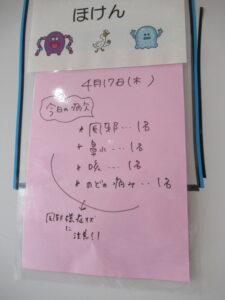 ほけん
4月17日(木)
今日の病欠
* 風邪…1名
* 鼻水…1名
* 咳…1名
* のどの痛み…1名
風邪様症状
に
注意!!